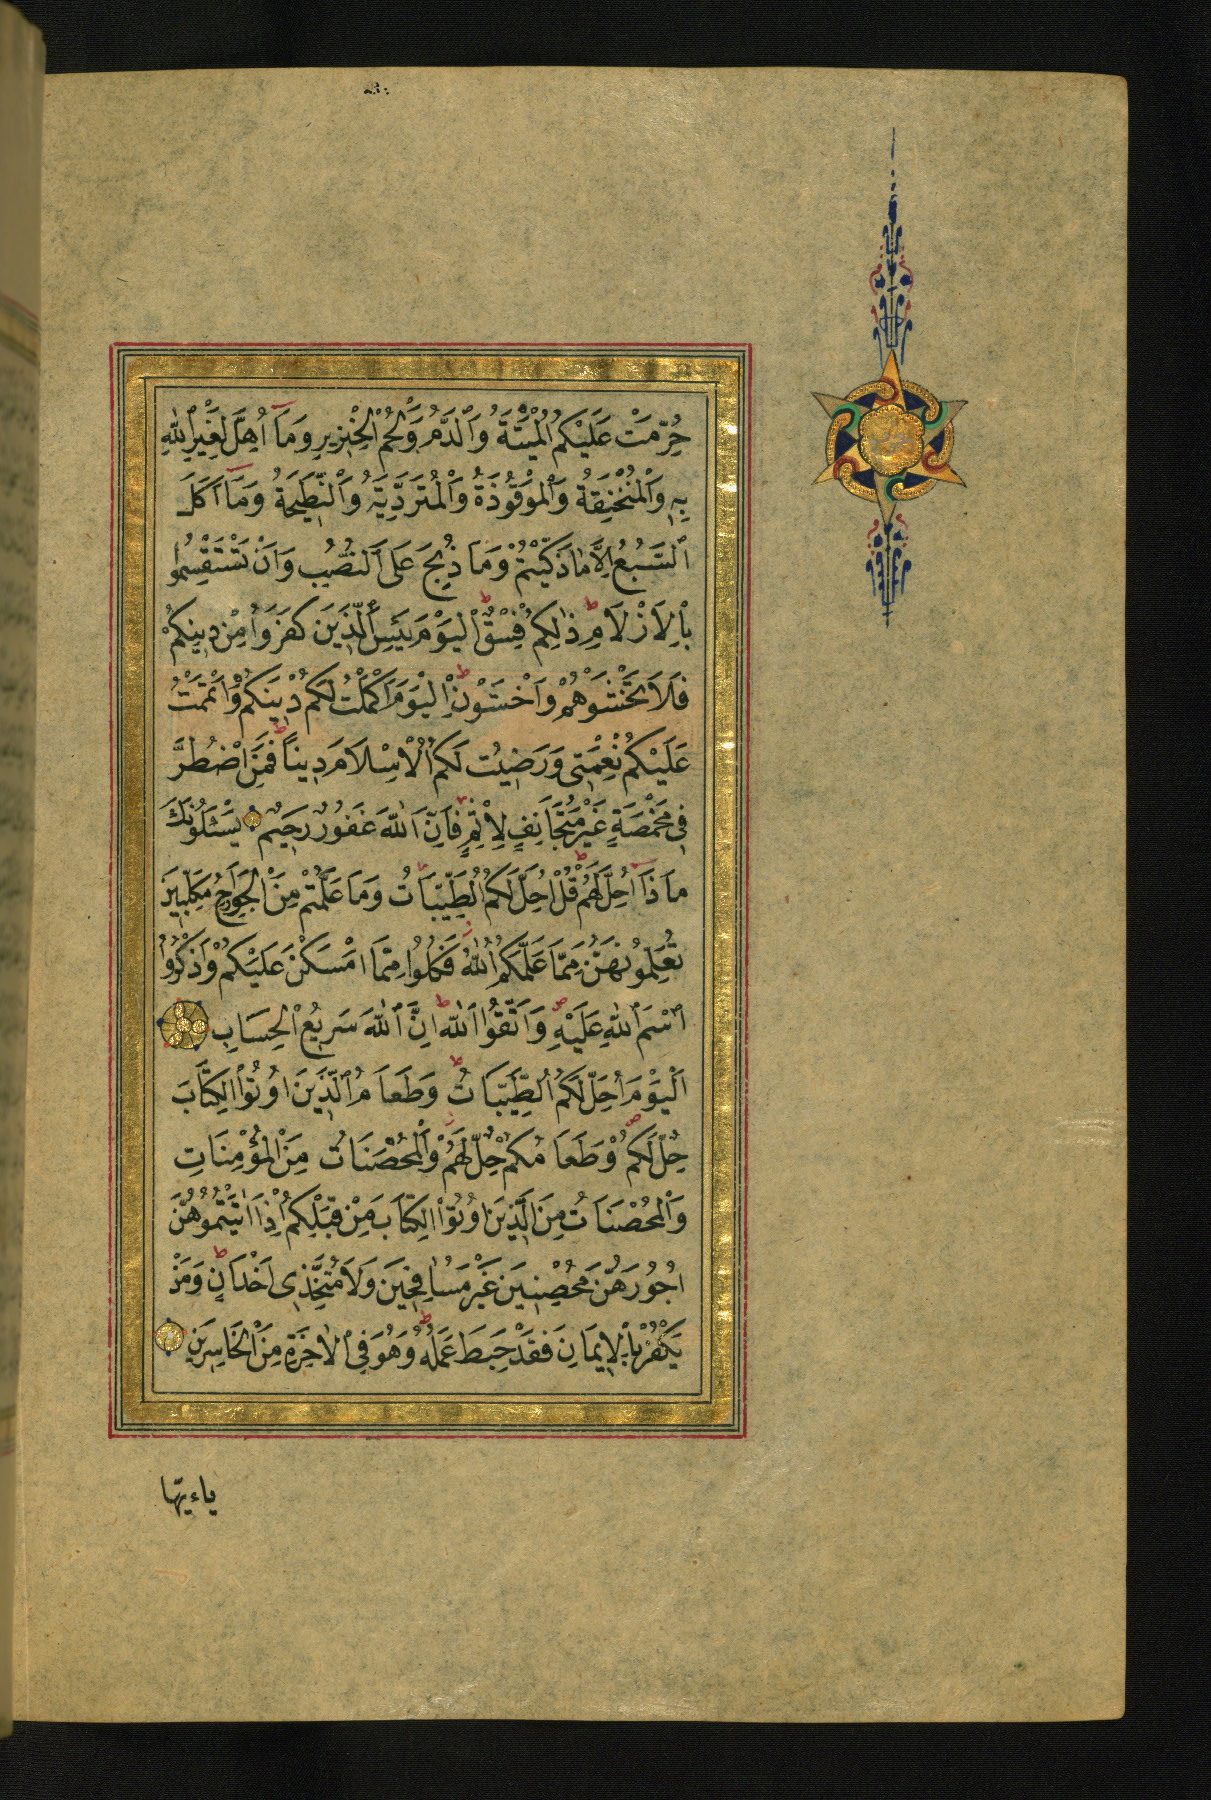 حُرِّمَتْ عَلَيْكُمُ الْمَيْتَةُ وَالدَّمُ وَلَحْمُ الْخِنْزِيرِ وَمَآ اُهِلَّ لِغَيْرِ اللّٰهِ
بِهٖ وَالْمُنْخَنِقَةُ وَالْمَوْقُوذَةُ وَالْمُتَرَدِّيَةُ وَالنَّطِيحَةُ وَمَآ اَكَلَ
السَّبُعُ اِلَّا مَا ذَكَّيْتُمْ وَمَا ذُبِحَ عَلَى النُّصُبِ وَاَنْ تَسْتَقْسِمُوا
بِالْاَزْلَامِ ذٰلِكُمْ فِسْقٌ اَلْيَوْمَ يَئِسَ الَّذِينَ كَفَرُوا مِنْ دِينِكُمْ
فَلَا تَخْشَوْهُمْ وَاخْشَوْنِ اَلْيَوْمَ اَكْمَلْتُ لَكُمْ دِينَكُمْ وَاَتْمَمْتُ
عَلَيْكُمْ نِعْمَتِي وَرَضِيتُ لَكُمُ الْاِسْلَامَ دِينًا فَمَنِ اضْطُرَّ
فِي مَخْمَصَةٍ غَيْرَ مُتَجَانِفٍ لِاِثْمٍ فَاِنَّ اللّٰهَ غَفُورٌ رَحِيمٌ يَسْئَلُونَكَ
مَاذَآ اُحِلَّ لَهُمْ قُلْ اُحِلَّ لَكُمُ الطَّيِّبَاتُ وَمَا عَلَّمْتُمْ مِنَ الْجَوَارِحِ مُكَلِّبِينَ
تُعَلِّمُونَهُنَّ مِمَّا عَلَّمَكُمُ اللّٰهُ فَكُلُوا مِمَّا اَمْسَكْنَ عَلَيْكُمْ وَاذْكُرُوا
اسْمَ اللّٰهِ عَلَيْهِ وَاتَّقُوا اللّٰهَ اِنَّ اللّٰهَ سَرِيعُ الْحِسَابِ
اَلْيَوْمَ اُحِلَّ لَكُمُ الطَّيِّبَاتُ وَطَعَامُ الَّذِينَ اُوتُوا الْكِتَابَ
حِلٌّ لَكُمْ وَطَعَامُكُمْ حِلٌّ لَهُمْ وَالْمُحْصَنَاتُ مِنَ الْمُؤْمِنَاتِ
وَالْمُحْصَنَاتُ مِنَ الَّذِينَ اُوتُوا الْكِتَابَ مِنْ قَبْلِكُمْ اِذَآ اٰتَيْتُمُوهُنَّ
اُجُورَهُنَّ مُحْصِنِينَ غَيْرَ مُسَافِحِينَ وَلَا مُتَّخِذِي اَخْدَانٍ وَمَنْ
يَكْفُرْ بِالْاِيمَانِ فَقَدْ حَبِطَ عَمَلُهُ وَهُوَ فِي الْاٰخِرَةِ مِنَ الْخَاسِرِينَ
ياءيّها